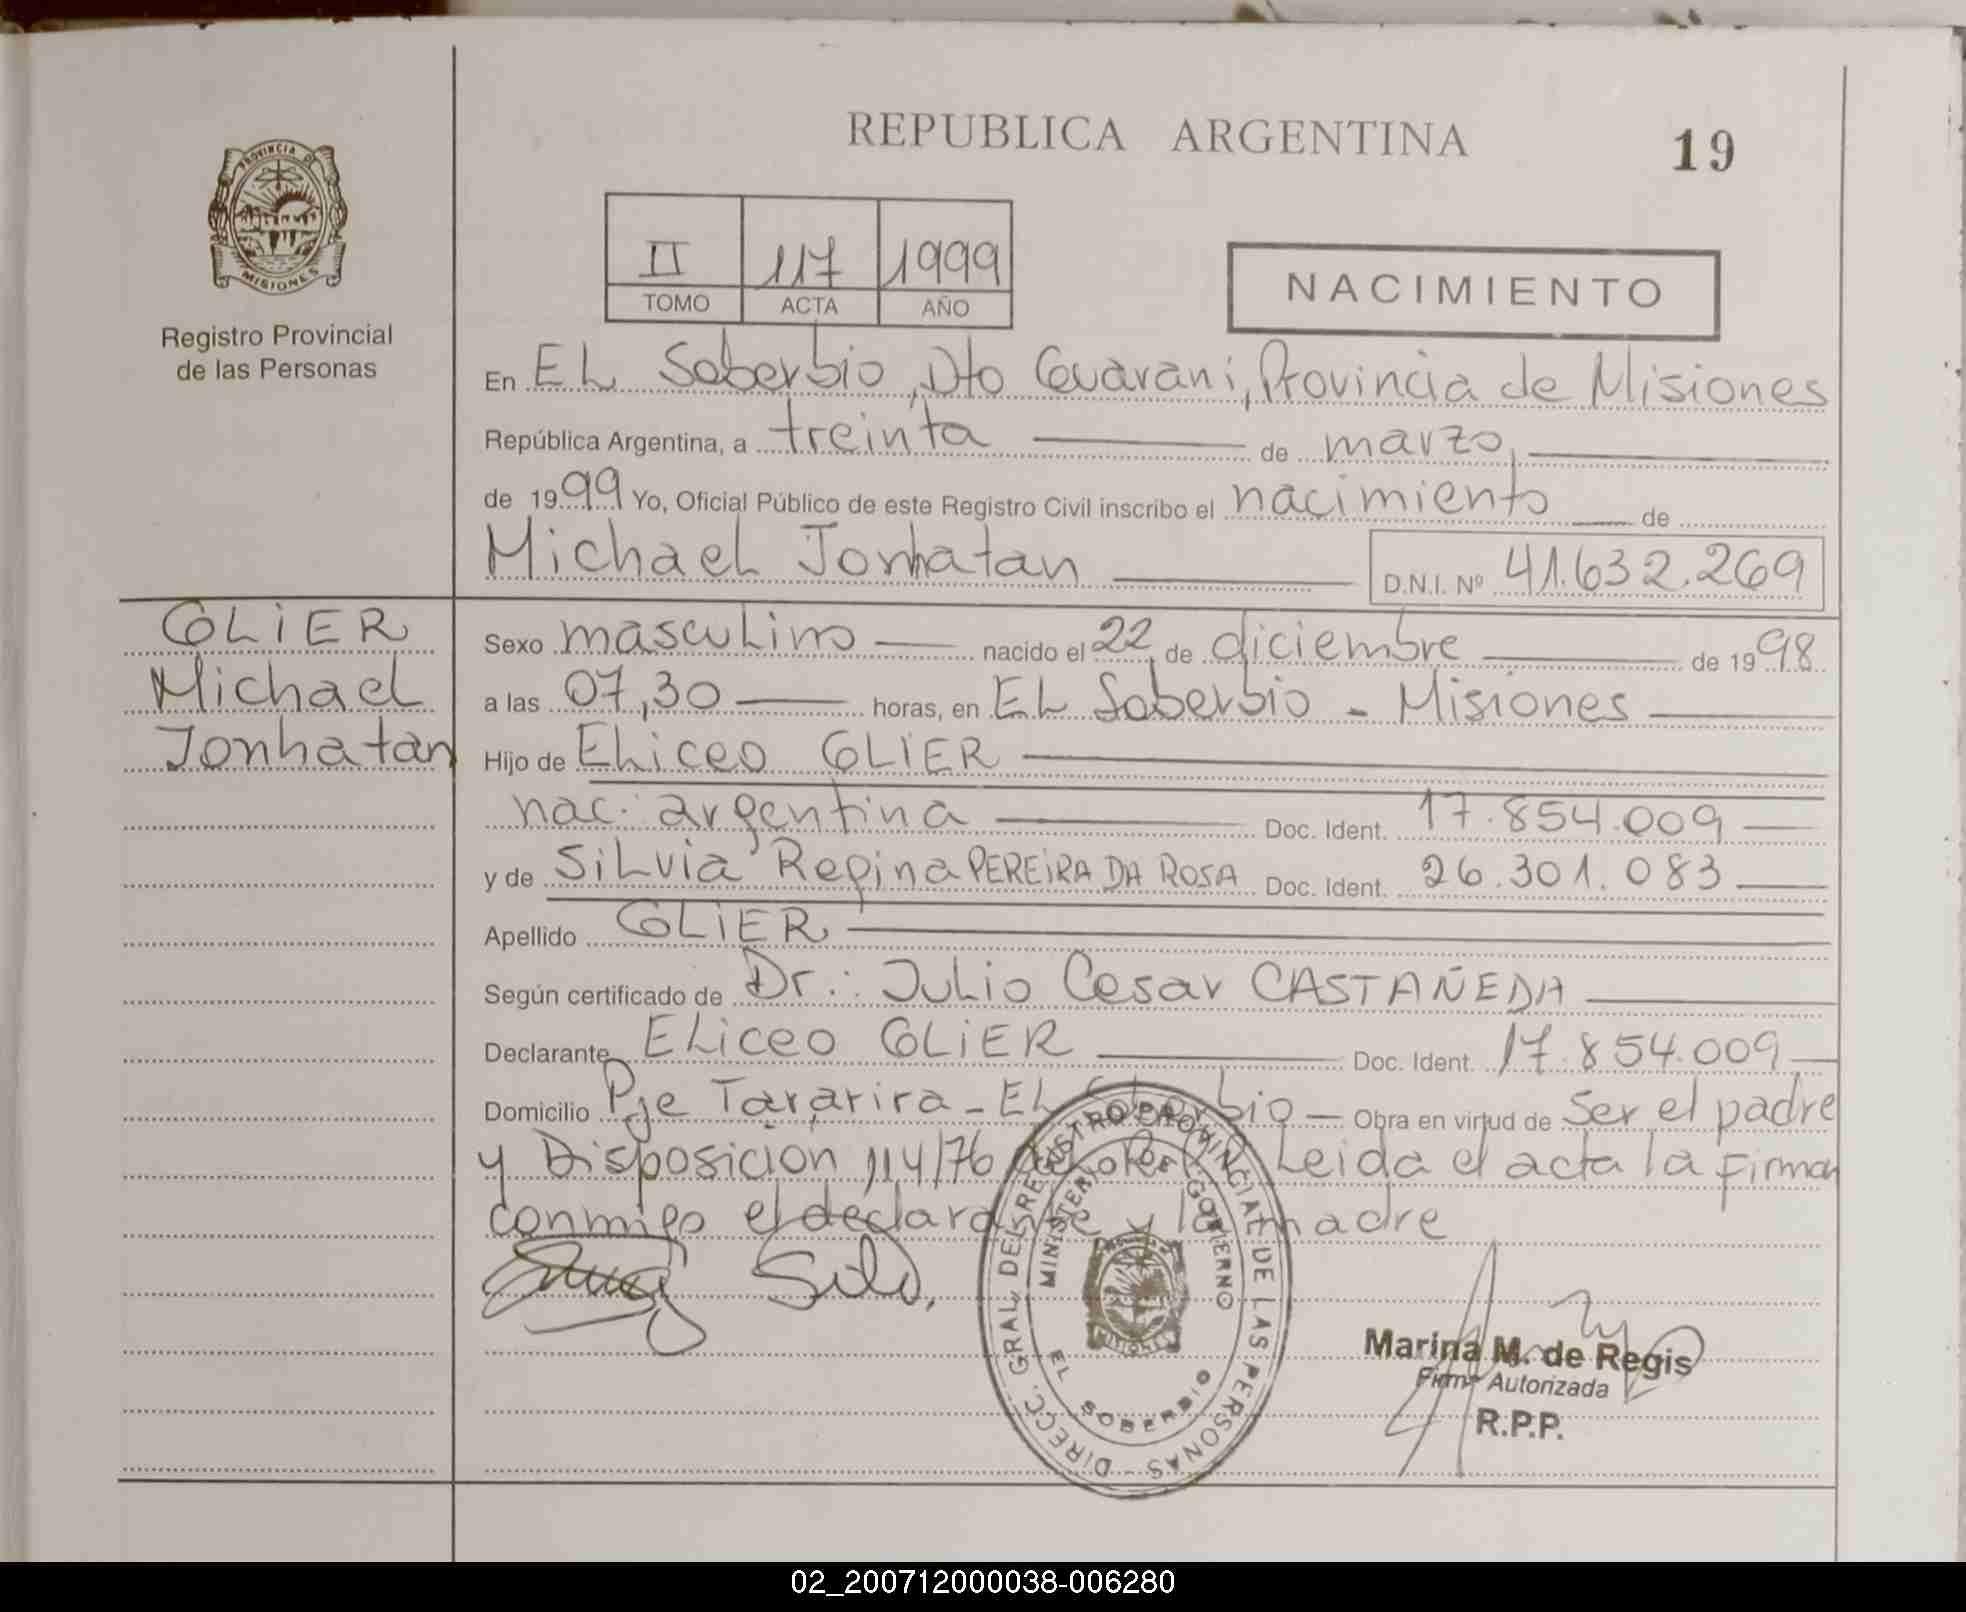 REPUBLICA ARGENTINA
19
PROVINCIA DE
MISIONES
Registro Provincial
de las Personas
II 117 1999
TOMO ACTA AÑO
NACIMIENTO
En EL Soberbio, Dto Guarani, Provincia de Misiones
República Argentina, a treinta de marzo,
de 1999 Yo, Oficial Público de este Registro Civil inscribo el nacimiento de
Michael Jonhatan D.N.I. Nº 41.632.269
GLiER
Michael
Jonhatan
Sexo masculino nacido el 22 de diciembre de 1998
a las 07,30 horas, en EL Soberbio - Misiones
Hijo de Eliceo GLiER
nac. argentina Doc. Ident. 17.854.009
y de SiLvia Regina PEREiRA DA ROSA Doc. Ident. 26.301.083
Apellido GLiER
Según certificado de Dr.: Julio Cesar CASTAÑEDA
Declarante ELiceo GLiER Doc. Ident. 17.854.009
Domicilio Pje Tararira - EL Soberbio Obra en virtud de Ser el padre
y Disposicion 114/76 Leida el acta la firman
conmigo el declarante y la madre
DIRECC. GRAL. DEL REGISTRO PROVINCIAL DE LAS PERSONAS
MINISTERIO DE GOBIERNO
MISIONES
EL SOBERBIO
Marina M. de Regis
Firma Autorizada
R.P.P.
02_200712000038-006280